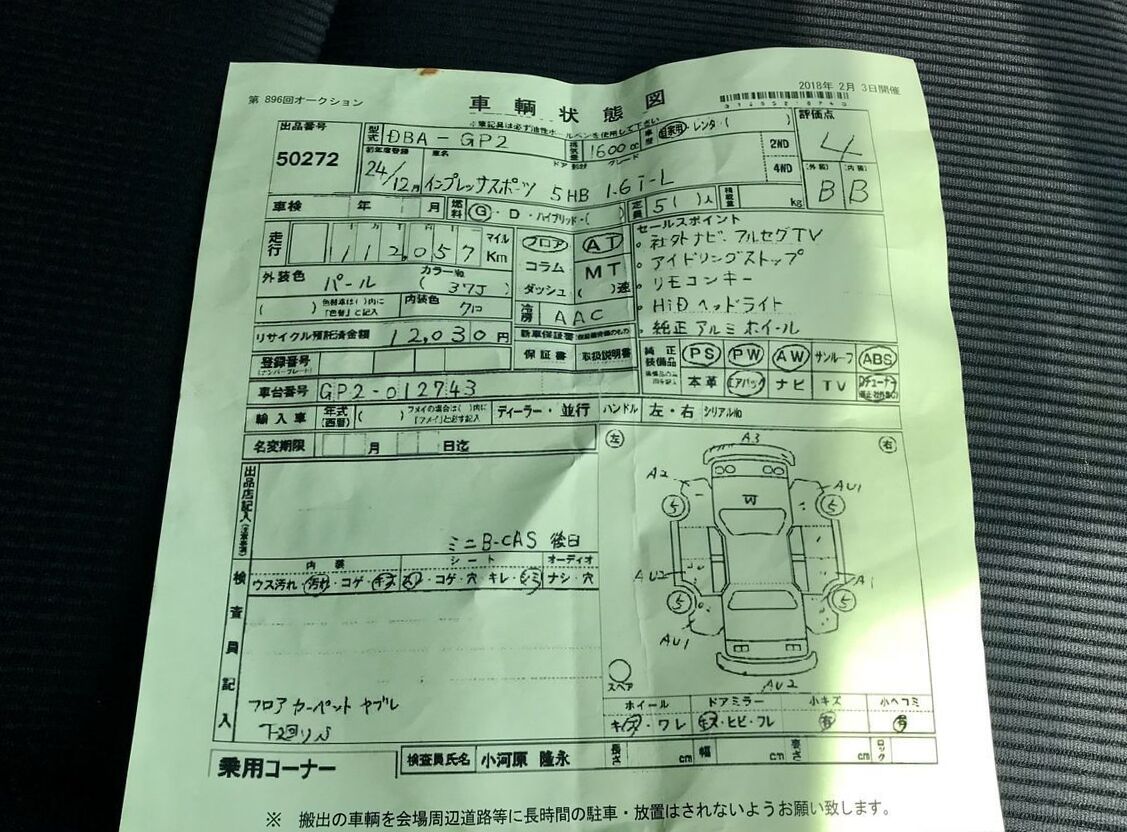 第 896回オークション
車輌状態図
2018年 2月 3日開催
※筆記具は必ず油性ボールペンを使用して下さい
出品番号
50272
型式 DBA-GP2
排気量 1600 cc
車歴 自家用・レンタ・( )
2WD
4WD
評価点
4
(外装) (内装)
B B
初年度登録
24/12月
車名 ドア 形状 グレード
インプレッサスポーツ 5HB 1.6i-L
車検 年 月
燃料 G・D・ハイブリッド・( )
定員 5( )人
積載量 kg
走行 112,057 マイル Km
フロア
コラム
ダッシュ
AT
MT
( )速
外装色 パール
カラーNo.
( 37J )
( ) 色替車は( )内に「色替」と記入
内装色 クロ
冷房 AAC
リサイクル預託済金額 12,030 円
新車保証書
保証書 取扱説明書
登録番号
(ナンバープレート)
セールスポイント
社外ナビ アルセグTV
アイドリングストップ
リモコンキー
HiDヘッドライト
純正アルミホイール
純正装備品
PS PW AW サンルーフ ABS
本革 エアバック ナビ TV
車台番号 GP2-012743
輸入車 年式(西暦) ( ) ディーラー・並行 ハンドル 左・右 シリアルNo
名変期限 月 日迄
出品店記入
ミニB-CAS 後日
内装 シート オーディオ
ウス汚れ・汚れ・コゲ・キズ
コゲ・穴 キレ・シミ
ナシ・穴
検査員記入
フロアカーペット ヤブレ
下回りサビ
左 右
A3
A2
AU1
5 5
AU2
A1
5 5
AU1
AU2
スペア
ホイール ドアミラー 小キズ 小ヘコミ
キズ・ワレ キズ・ヒビ・フレ 有 有
乗用コーナー
検査員氏名 小河原 隆永
長さ cm 幅 cm 高さ cm ロック
※ 搬出の車輌を会場周辺道路等に長時間の駐車・放置はされないようお願い致します。